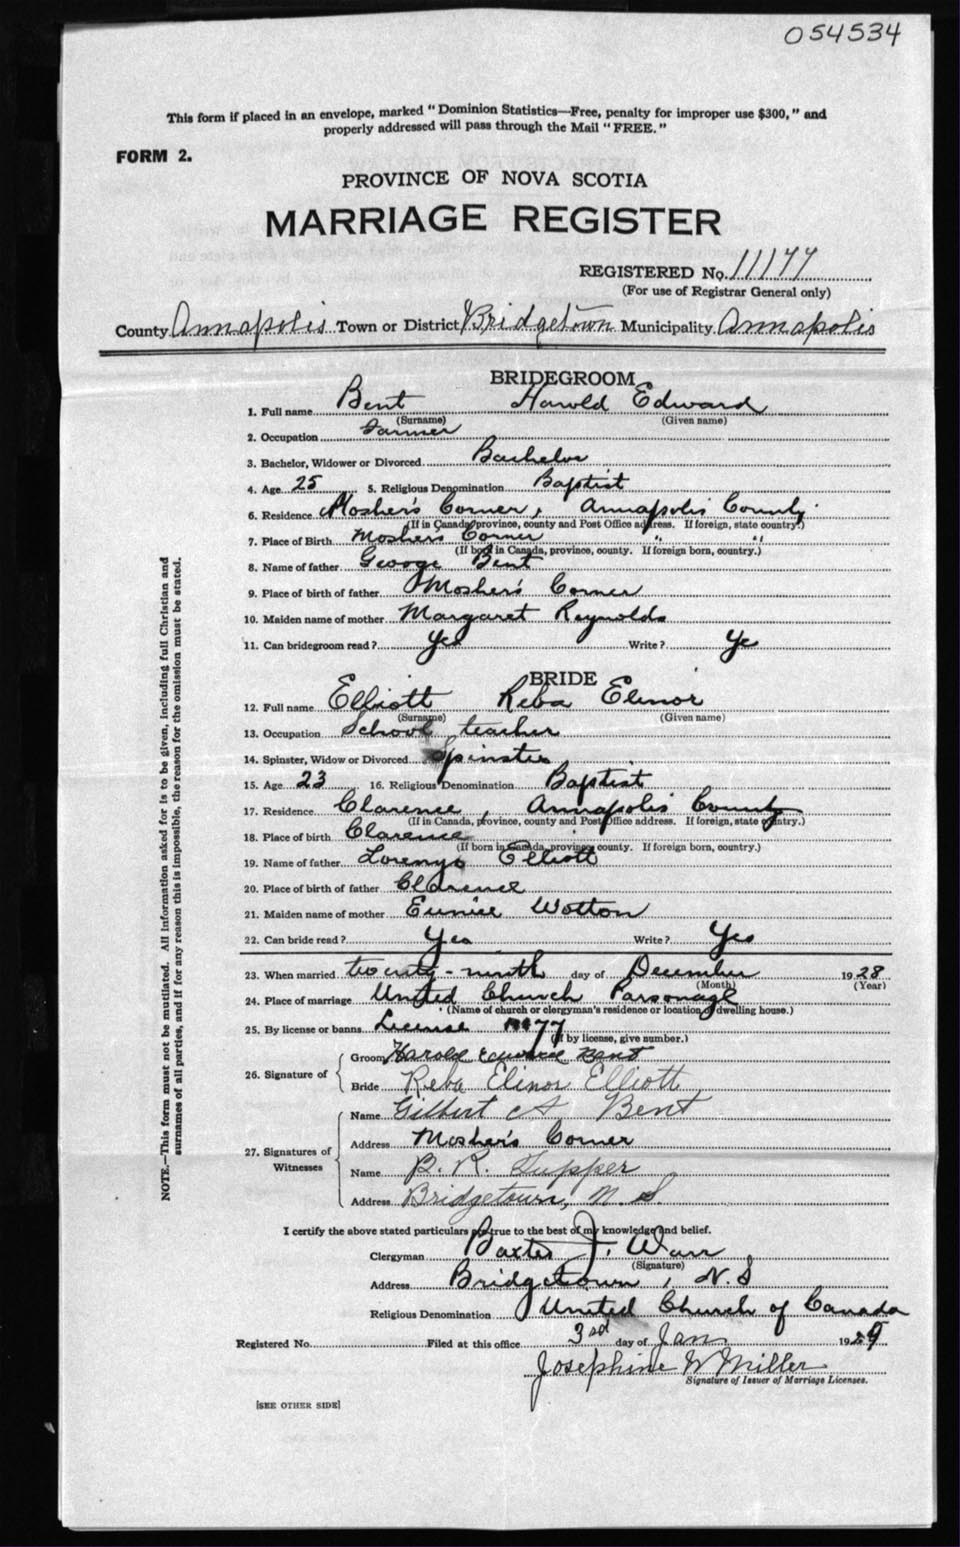 054534
This form if placed in an envelope, marked "Dominion Statistics—Free, penalty for improper use $300," and
properly addressed will pass through the Mail "FREE."
FORM 2.
PROVINCE OF NOVA SCOTIA
MARRIAGE REGISTER
REGISTERED No. 11177
(For use of Registrar General only)
County Annapolis Town or District Bridgetown Municipality Annapolis
BRIDEGROOM
1. Full name Bent Harold Edward
(Surname) (Given name)
2. Occupation Farmer
3. Bachelor, Widower or Divorced Bachelor
4. Age 25 5. Religious Denomination Baptist
6. Residence Mosher's Corner, Annapolis County
(If in Canada, province, county and Post Office address. If foreign, state country.)
7. Place of Birth Mosher's Corner " "
(If born in Canada, province, county. If foreign born, country.)
8. Name of father George Bent
9. Place of birth of father Mosher's Corner
10. Maiden name of mother Margaret Reynolds
11. Can bridegroom read? Yes Write? Ye
BRIDE
12. Full name Elliott Reba Elinor
(Surname) (Given name)
13. Occupation School teacher
14. Spinster, Widow or Divorced Spinster
15. Age 23 16. Religious Denomination Baptist
17. Residence Clarence, Annapolis County
(If in Canada, province, county and Post Office address. If foreign, state country.)
18. Place of birth Clarence
(If born in Canada, province, county. If foreign born, country.)
19. Name of father Lorenzo Elliott
20. Place of birth of father Clarence
21. Maiden name of mother Eunice Wotton
22. Can bride read? Yes Write? Yes
23. When married twenty-ninth day of December 1928
(Month) (Year)
24. Place of marriage United Church Parsonage
(Name of church or clergyman's residence or location of dwelling house.)
25. By license or banns License 77
(If by license, give number.)
26. Signature of
Groom Harold Edward Bent
Bride Reba Elinor Elliott
27. Signatures of Witnesses
Name Gilbert A Bent
Address Mosher's Corner
Name B. R. Tupper
Address Bridgetown, N. S.
I certify the above stated particulars are true to the best of my knowledge and belief.
Clergyman Baxter J. Warr
(Signature)
Address Bridgetown, N.S
Religious Denomination United Church of Canada
Registered No. Filed at this office 3rd day of Jan 1929
Josephine W Miller
Signature of Issuer of Marriage Licenses.
[SEE OTHER SIDE]
NOTE.—This form must not be mutilated. All information asked for is to be given, including full Christian and
surnames of all parties, and if for any reason this is impossible, the reason for the omission must be stated.